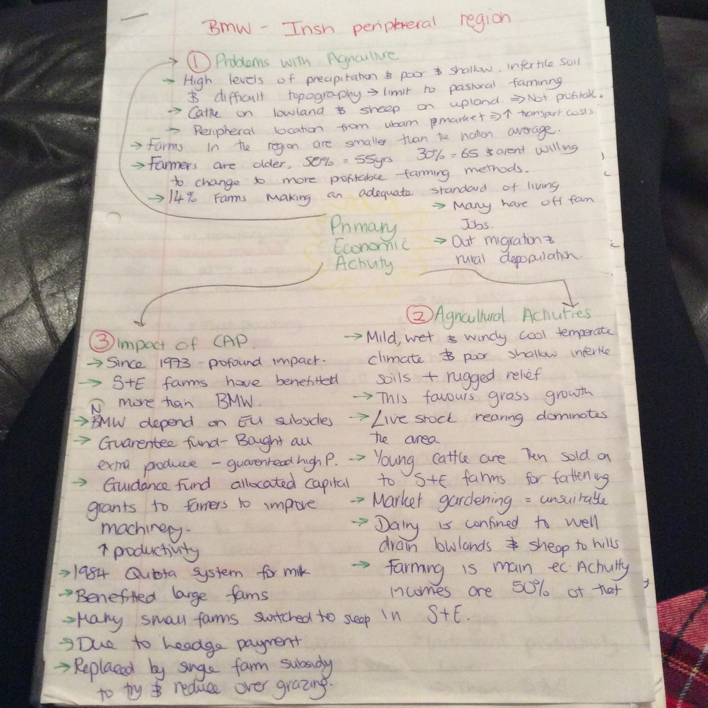 BMW - Irish peripheral region
① Problems with Agriculture
→ High levels of precipitation & poor & shallow, infertile soil
& difficult topography → limit to pastoral farming
→ Cattle on lowland & sheep on upland. ⇒ Not profitab.
→ Peripheral location from urban market ⇒ ↑ transport costs
→ Farms in the region are smaller than the nation average.
→ Farmers are older, 50% = 55yrs 30% = 65 & arent willing
to change to more profitable farming methods.
→ 14% Farms making an adequate standard of living
→ Many have off farm
Jobs.
→ Out migration &
rural depopulation.
Primary
Economic
Activity
② Agricultural Activities
→ Mild, wet & windy cool temperate
climate & poor shallow infertile
soils + rugged relief
→ This favours grass growth
→ Live stock rearing dominates
the area
→ Young cattle are then sold on
to S+E farms for fattening
→ Market gardening = unsuitable
→ Dairy is confined to well
drain lowlands & sheep to hills
→ Farming is main ec Activity
incomes are 50% of that
in S+E.
③ Impact of CAP.
→ Since 1973 profound impact.
→ S+E farms have benefitted
more than BMW.
→ BMW depend on EU subsidies
→ Guarentee fund - Bought all
extra produce - guarenteed high P.
→ Guidance Fund allocated capital
grants to farmers to improve
machinery.
↑ productivity
→ 1984 Quota system for milk
→ Benefitted large farms
→ Many small farms switched to sheep
→ Due to headge payment
→ Replaced by single farm subsidy
to try & reduce over grazing.